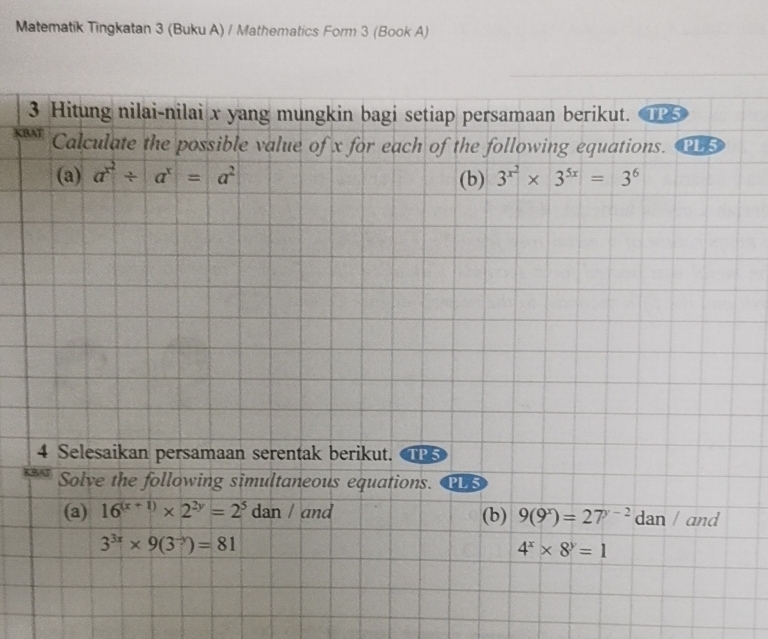 Matematik Tingkatan 3 (Buku A) / Mathematics Form 3 (Book A)
3 Hitung nilai-nilai x yang mungkin bagi setiap persamaan berikut. TP 5
KBAT Calculate the possible value of x for each of the following equations. PL 5
(a) a^{x^2} ÷ a^x = a^2 (b) 3^{x^2} × 3^{5x} = 3^6
4 Selesaikan persamaan serentak berikut. TP 5
KBAT Solve the following simultaneous equations. PL 5
(a) 16^{(x + 1)} × 2^{2y} = 2^5 dan / and (b) 9(9^x) = 27^{y – 2} dan / and
3^{3x} × 9(3^{-y}) = 81 4^x × 8^y = 1